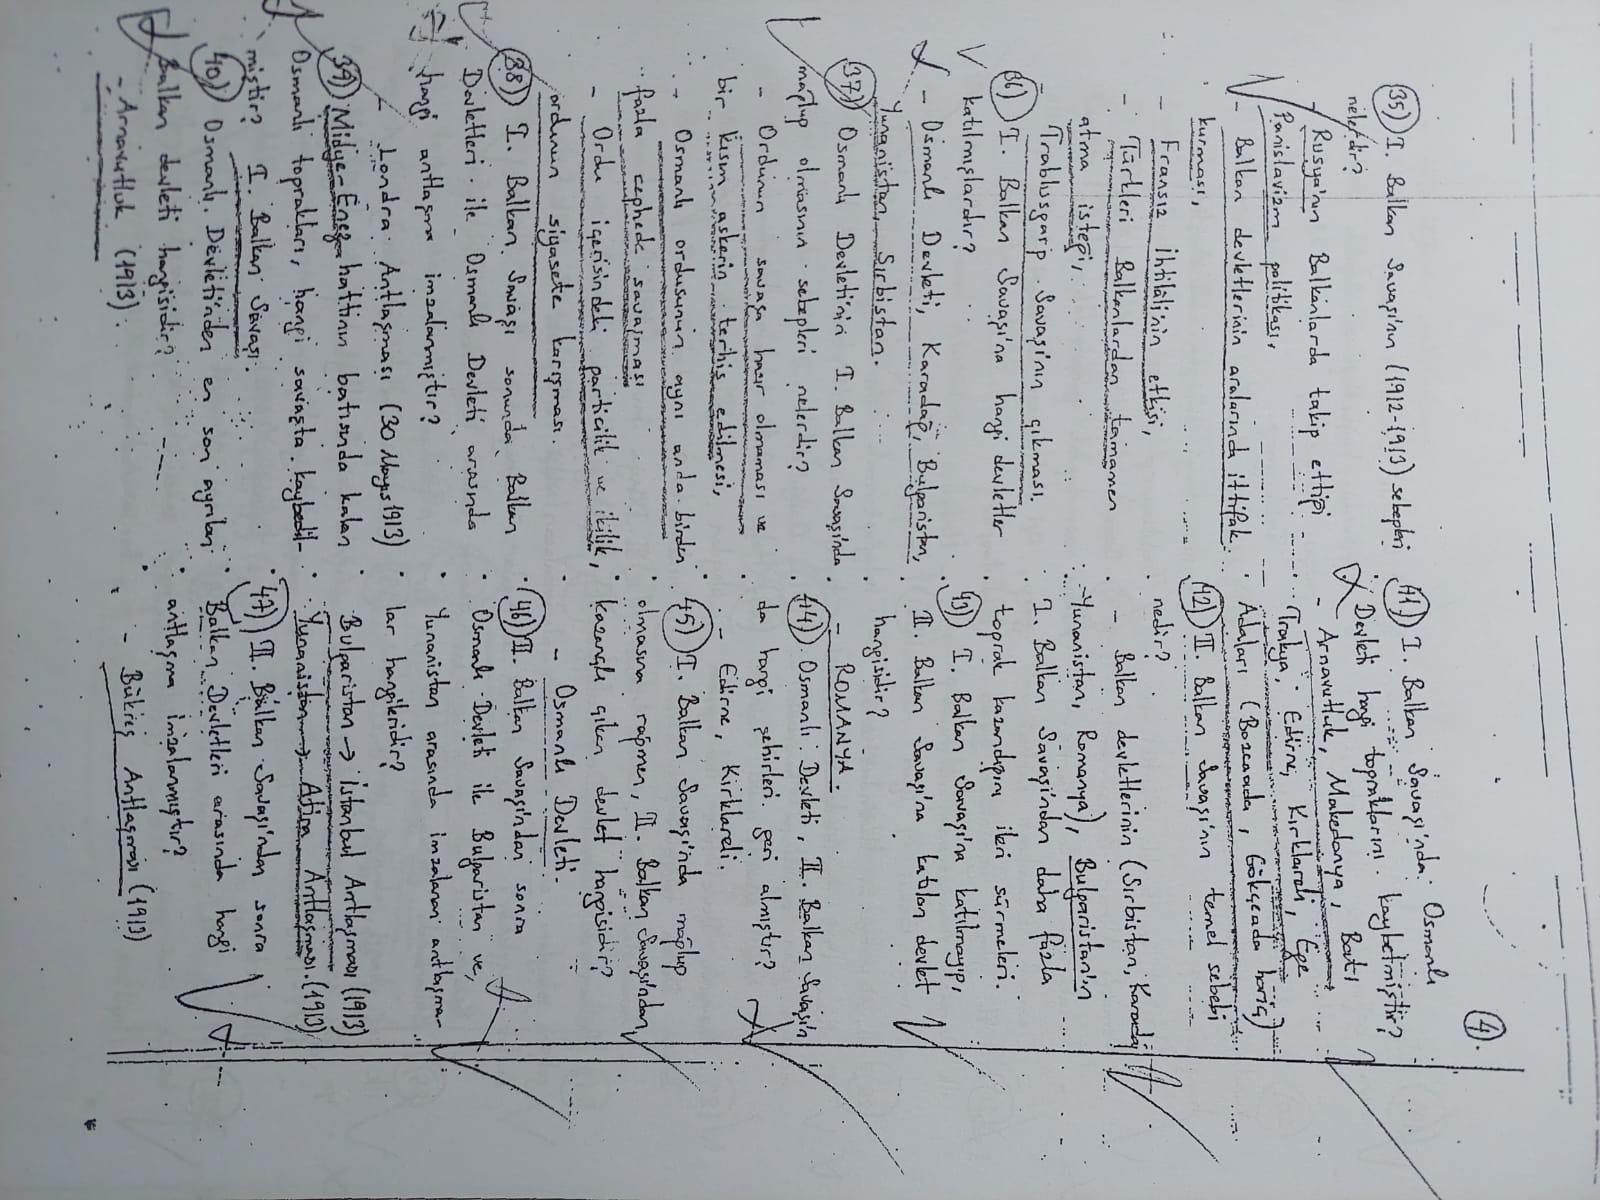 4.
35) I. Balkan Savaşı'nın (1912-1913) sebepleri
nelerdir?
- Rusya'nın Balkanlarda takip ettiği
Panislavizm politikası,
- Balkan devletlerinin aralarında ittifak
kurması,
- Fransız İhtilâli'nin etkisi,
- Türkleri Balkanlardan tamamen
atma isteği,
- Trablusgarp Savaşı'nın çıkması.
36) I. Balkan Savaşı'na hangi devletler
katılmışlardır?
- Osmanlı Devleti, Karadağ, Bulgaristan,
Yunanistan, Sırbistan.
37) Osmanlı Devleti'nin I. Balkan Savaşı'nda
mağlup olmasının sebepleri nelerdir?
- Ordunun savaşa hazır olmaması ve
bir kısım askerin terhis edilmesi,
- Osmanlı ordusunun aynı anda birden
fazla cephede savaşması
- Ordu içerisindeki particilik ve ikilik,
ordunun siyasete karışması.
38) I. Balkan Savaşı sonunda Balkan
Devletleri ile Osmanlı Devleti arasında
hangi antlaşma imzalanmıştır?
- Londra Antlaşması (30 Mayıs 1913)
39) Midye-Enez hattının batısında kalan
Osmanlı toprakları, hangi savaşta kaybedil-
miştir? I. Balkan Savaşı.
40) Osmanlı Devleti'nden en son ayrılan
Balkan devleti hangisidir?
- Arnavutluk (1913).
41) I. Balkan Savaşı'nda Osmanlı
Devleti hangi topraklarını kaybetmiştir?
- Arnavutluk, Makedonya, Batı
Trakya, Edirne, Kırklareli, Ege
Adaları (Bozcaada, Gökçeada hariç)
42) II. Balkan Savaşı'nın temel sebebi
nedir?
- Balkan devletlerinin (Sırbistan, Karadağ
Yunanistan, Romanya), Bulgaristan'ın
I. Balkan Savaşı'ndan daha fazla
toprak kazandığını ileri sürmeleri.
43) I. Balkan Savaşı'na katılmayıp,
II. Balkan Savaşı'na katılan devlet
hangisidir?
- ROMANYA.
44) Osmanlı Devleti, II. Balkan Savaşın
da hangi şehirleri geri almıştır?
- Edirne, Kırklareli.
45) I. Balkan Savaşı'nda mağlup
olmasına rağmen, II. Balkan Savaşı'ndan
kazançlı çıkan devlet hangisidir?
- Osmanlı Devleti.
46) II. Balkan Savaşı'ndan sonra
Osmanlı Devleti ile Bulgaristan ve,
Yunanistan arasında imzalanan antlaşma-
lar hangileridir?
Bulgaristan → İstanbul Antlaşması (1913)
Yunanistan → Atina Antlaşması. (1913)
47) II. Balkan Savaşı'ndan sonra
Balkan Devletleri arasında hangi
antlaşma imzalanmıştır?
- Bükreş Antlaşması (1913)